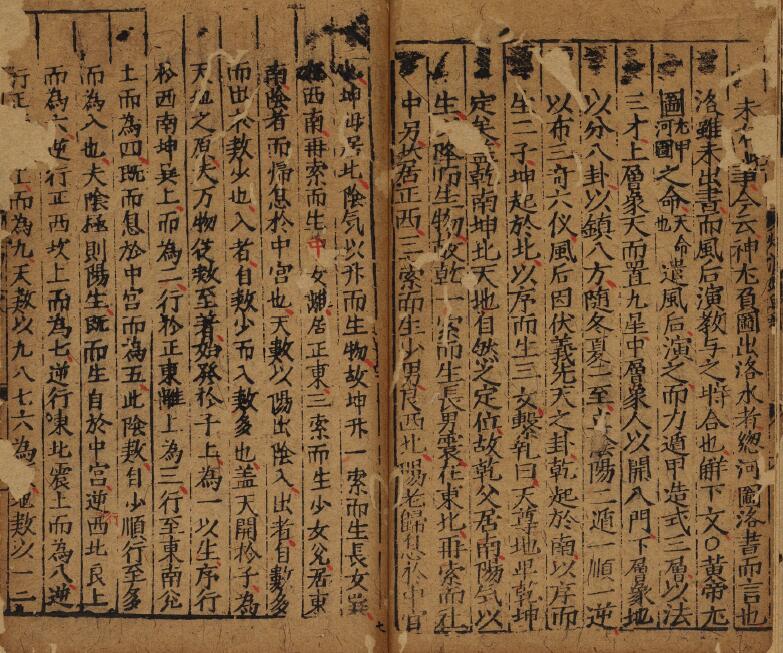 未有此事今云神龙負圖出洛水者總河圖洛書而言也
洛雖未出書而風后演教与之脗合也觧下文○黃帝尤
圖尤甲河圖之命天命也遣風后演之而力遁甲造式三層以法
三才上層象天而置九星中層象人以開八門下層象地
以分八卦以鎮八方随冬夏二至立陰陽二遁一順一逆
以布三竒六仪風后因伏羲先天之卦乾起於南以序而
生三子坤起於北以序而生三女繫乳曰天尊地卑乾坤
定矣盖乾南坤北天地自然之定位故乾父居南陽気以
生降而生物故乾一索而生長男震在東北再索而生
中男坎居正西三索而生少男艮西北陽老歸息於中宫
坤毋居北陰気以升而生物故坤升一索而生長女巽
西南再索而生中女離居正東三索而生少女兊居東
南陰者而歸息於中宫也天數以陽出陰入出者自數多
而出衣數少也入者自數少而入數多也盖天開於子為
天地之原夫万物從數至著始於於子上為一以生序行
於西南坤巽上而為二行於正東離上為三行至東南兊
上而為四既而息於中宫而為五此陰数自少順行至多
而為入也夫陰極則陽生既而生自於中宫逆西北艮上
而為六逆行正西坎上而為七逆行東北震上而為八逆
行正 上而為九天数以九八七六為 地数以一二
七